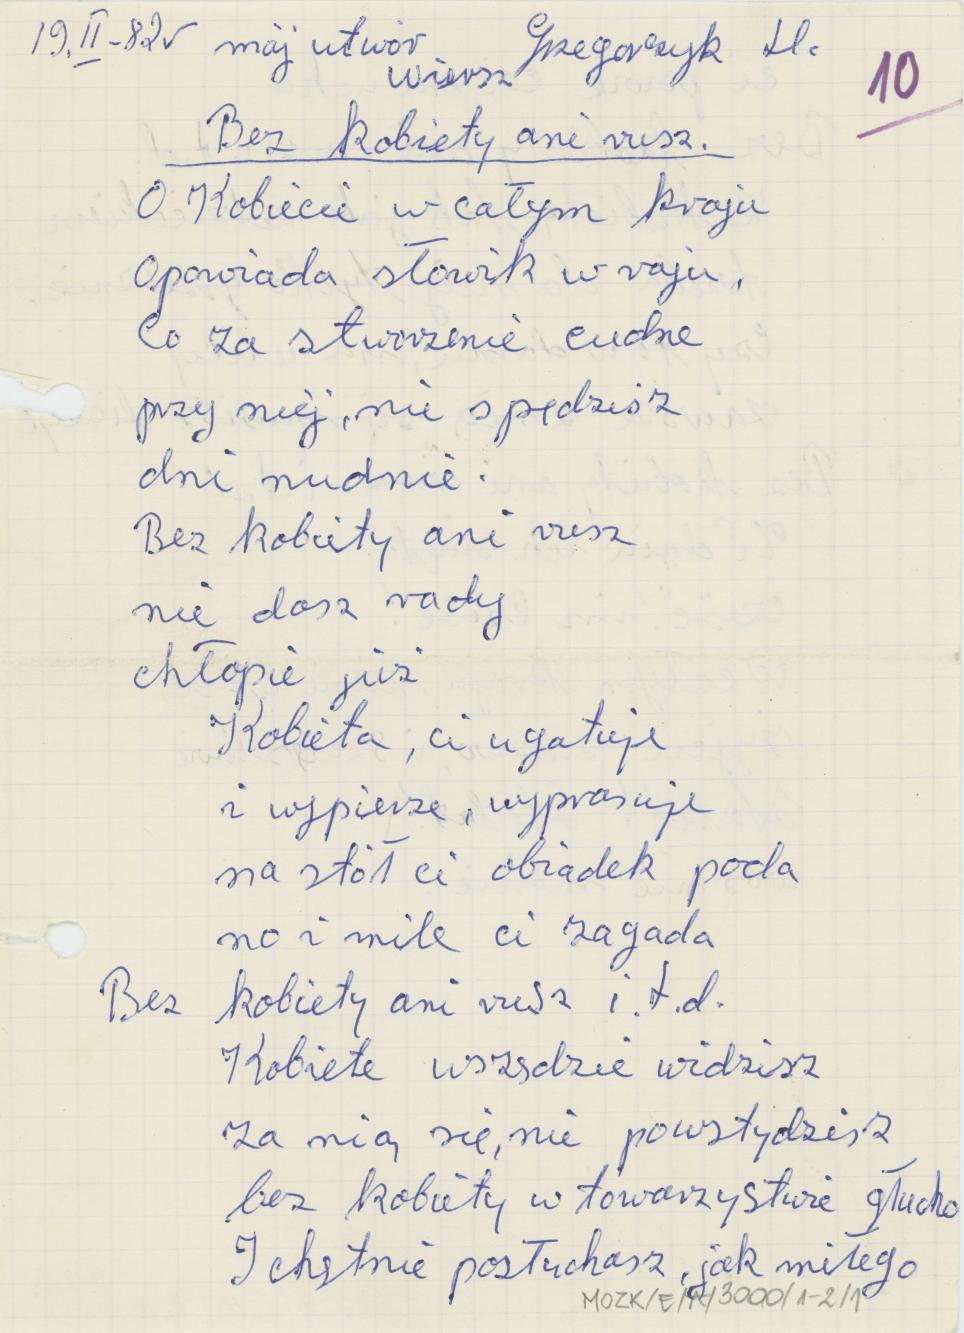 19.II-82r mój utwór Grzegorczyk H.
wiersz
10
Bez kobiety ani rusz.
O Kobiecie w całym kraju
Opowiada słowik w raju,
Co za stworzenie cudne
przy niej, nie spędzisz
dni nudnie.
Bez kobiety ani rusz
nie dosz rady
chłopie już
Kobieta, ci ugatuje
i wypierze, wyprasuje
na stół ci obiadek poda
no i mile ci zagada
Bez kobiety ani rusz i.t.d.
Kobiete wszędzie widzisz
za nią się, nie powstydzisz
bez kobiety w towarzystwie głucho
I chętnie posłuchasz, jak miłego
MOZK/E/R/3000/1-2/1